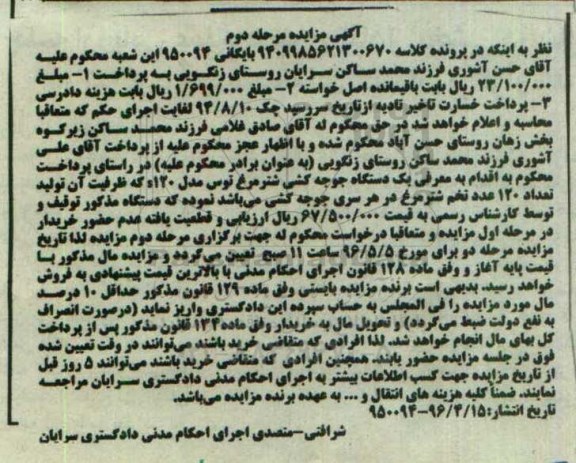 آگهی مزایده مرحله دوم
نظر به اینکه در پرونده کلاسه ۹۴۰۹۹۸۵۶۲۱۳۰۰۶۷۰ بایگانی ۹۵۰۰۹۴ این شعبه محکوم علیه
آقای حسن آشوری فرزند محمد ساکن سرایان روستای زنگویی به پرداخت ۱- مبلغ
۲۳/۱۰۰/۰۰۰ ریال بابت باقیمانده اصل خواسته ۲- مبلغ ۱/۶۹۹/۰۰۰ ریال بابت هزینه دادرسی
۳- پرداخت خسارت تاخیر تادیه ازتاریخ سررسید چک ۹۴/۸/۱۰ لغایت اجرای حکم که متعاقبا
محاسبه و اعلام خواهد شد در حق محکوم له آقای صادق غلامی فرزند محمد ساکن زیرکوه
بخش زهان روستای حسن آباد محکوم شده و با اظهار عجز محکوم علیه از پرداخت آقای علی
آشوری فرزند محمد ساکن روستای زنگویی (به عنوان برادر محکوم علیه) در راستای پرداخت
محکوم به اقدام به معرفی یک دستگاه جوجه کشی شترمرغ توس مدل ۱۲۰ء که ظرفیت آن تولید
تعداد ۱۲۰ عدد تخم شترمرغ در هر سری جوجه کشی می‌باشد نموده که دستگاه مذکور توقیف و
توسط کارشناس رسمی به قیمت ۶۷/۵۰۰/۰۰۰ ریال ارزیابی و قطعیت یافته عدم حضور خریدار
در مرحله اول مزایده و متعاقبا درخواست محکوم له جهت برگزاری مرحله دوم مزایده لذا تاریخ
مزایده مرحله دو برای مورخ ۹۶/۵/۵ ساعت ۱۱ صبح تعیین می‌گردد و مزایده مال مذکور با
قیمت پایه آغاز و وفق ماده ۱۲۸ قانون اجرای احکام مدنی با بالاترین قیمت پیشنهادی به فروش
خواهد رسید. بدیهی است برنده مزایده بایستی وفق ماده ۱۲۹ قانون مذکور حداقل ۱۰ درصد
مال مورد مزایده را فی المجلس به حساب سپرده این دادگستری واریز نماید (درصورت انصراف
به نفع دولت ضبط می‌گردد) و تحویل مال به خریدار وفق ماده ۱۳۴ قانون مذکور پس از پرداخت
کل بهای مال انجام خواهد شد. لذا افرادی که متقاضی خرید باشند می‌توانند در وقت تعیین شده
فوق در جلسه مزایده حضور یابند. همچنین افرادی که متقاضی خرید باشند می‌توانند ۵ روز قبل
از تاریخ مزایده جهت کسب اطلاعات بیشتر به اجرای احکام مدنی دادگستری سرایان مراجعه
نمایند. ضمناً کلیه هزینه های انتقال و ... به عهده برنده مزایده می‌باشد.
تاریخ انتشار: ۹۶/۴/۱۵-۹۵۰۰۹۴
شرافتی-متصدی اجرای احکام مدنی دادگستری سرایان